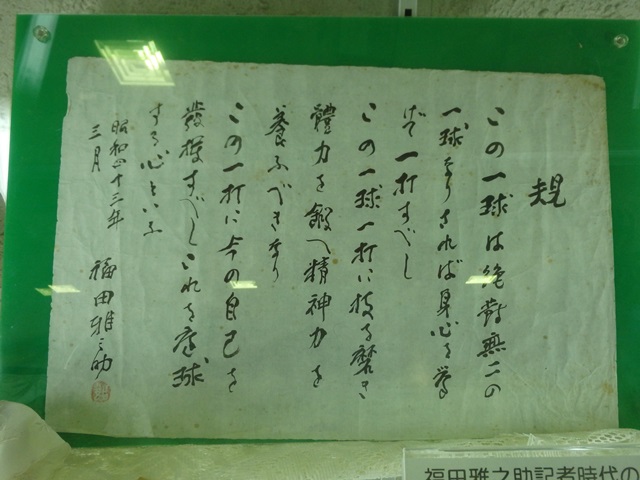 規
この一球は絶對無二の
一球なりされば身心を挙
げて一打すべし
この一球一打に技を磨き
體力を鍛へ精神力を
養ふべきなり
この一打に今の自己を
發揮すべしこれを庭球
する心といふ
昭和四十三年
三月
福田雅之助
福田雅之助記者時代の